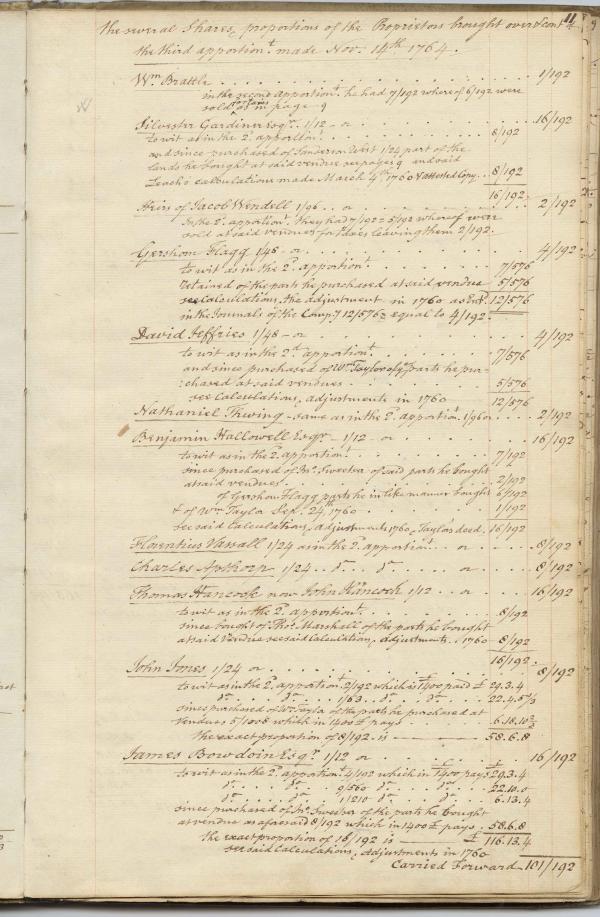 11
the several Shares, proportions of the Proprietors brought over & cont.d
the third apportion.t made Nov. 14th 1764.
Wm Brattle . . . . 1/192
in the second apportion.t he had 7/192 where of 6/192 were
sold for taxes as in page 9
Silvester Gardiner Esqr. 1/12 - or . . . . 16/192
to wit as in the 2d. apportion.t . . . . 8/192
and since purchased of Sanderson West 1/24 part of the
lands he bought at said vendue and said
Leach's calculations made March 4th 1760 & attested Copy . . 8/192
16/192
Heirs of Jacob Wendell 1/96 . . or . . . . 2/192
In the 2d. apportion.t they had 7/192 - 5/192 whereof were
sold at said vendues for taxes leaving them 2/192.
Gershom Flagg 1/48 - or . . . . 4/192
to wit as in the 2d. apportion.t . . . . 7/576
retained of the parts he purchased at said vendue 5/576
see Calculations, the adjustment in 1760 as 12/576
in the Journals of the Comp.y 12/576 equal to 4/192.
David Jeffries 1/48 - or . . . . 4/192
to wit as in the 2d apportion.t . . . . 7/576
and since purchased of Wm Taylor of ye parts he pur-
:chased at said vendues . . . . 5/576
see Calculations, adjustments in 1760 12/576
Nathaniel Thwing - same as in the 2d. apportion.t 1/96 or . . . . 2/192
Benjamin Hallowell Esqr - 1/12 - or . . . . 16/192
to wit as in the 2d. apportion.t . . . . 7/192
since purchased of Jno. Sweetser of said parts he bought
at said vendues . . . . 2/192
of Gershom Flagg parts he in like manner bought 6/192
& of Wm Tayla Sep. 24th, 1760 . . . . 1/192
see said Calculations, Adjustments 1760, Taylor's deed. 16/192
Florentius Vassall 1/24 as in the 2d. apportion.t . . or . . . . 8/192
Charles Apthorp 1/24 . . do . . do . . or . . . . 8/192
Thomas Hancock now John Hancock 1/12 . . or . . . . 16/192
to wit as in the 2d. apportion.t . . . . 8/192
since bought of Thos. Marshall of the parts he bought
at said Vendue see said Calculation, adjustments . 1760 8/192
16/192
John Jones 1/24 or . . . . 8/192
to wit as in the 2d. apportion.t 2/192 which is 1400 paid £ 29.3.4
do. . . . do . . 1/63 . . do . . do . . 22.4.5 1/3
since purchased of Wm Tayla of the parts he purchased at
Vendues 5/1008 which in 1400£ pays . . . . 6.18.10 2/3
the exact proportion of 8/192 . is 58.6.8
James Bowdoin Esqr 1/12 or . . . . 16/192
to wit as in the 2d. apportion.t 4/192 which in £1400 pays £29.3.4
do . . . . do . . . 9/560 do . . do . . 22.10.0
do . . . . do . . . 1/210 do . . do . . 6.13.4
since purchased of Jno. Sweetser of the parts he bought
at vendue as aforesaid 8/192 which in 1400£ pays . 58.6.8
the exact proportion of 16/192 is £ 116.13.4
see said Calculations, Adjustments in 1760
Carried Forward 101/192